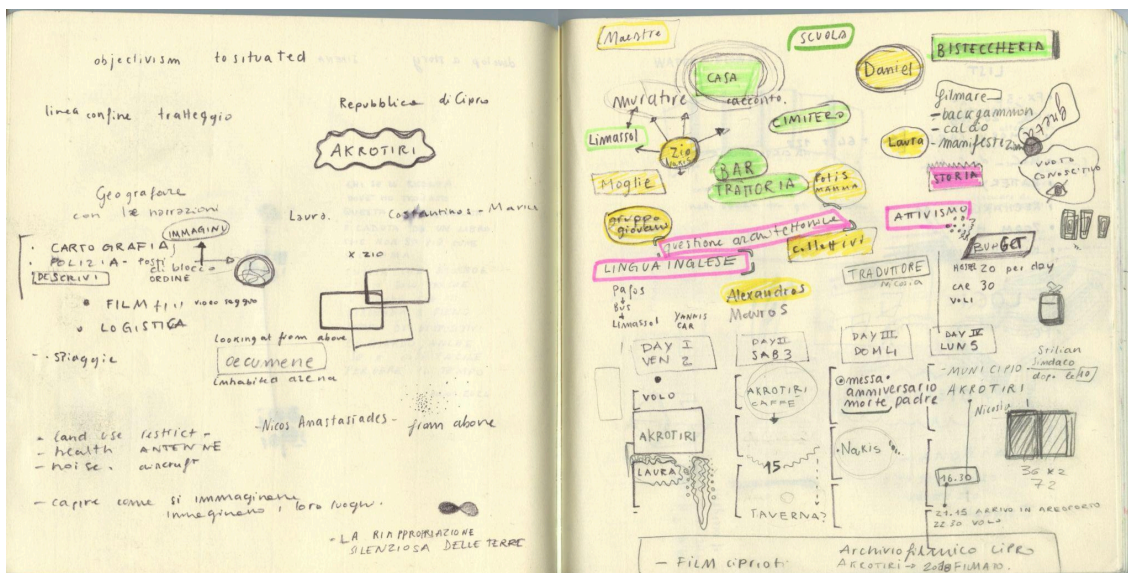 objectivism to situated
linea confine tratteggio
Repubblica di Cipro
AKROTIRI
Geografare
con le narrazioni
IMMAGINI
Lauro. Costantinos - Maria
x zio
· CARTOGRAFIA
· POLIZIA - posti di blocco
ORDINE
DESCRIVI
• FILM
• LOGISTICA
- Spiaggie
Looking at from above
oecumene
inhabited arena
- Nicos Anastasiades - from above
- land use restrict -
- health ANTENNE
- noise. aircraft
- capire come si immaginano
immaginano i loro luoghi.
- LA RIAPPROPRIAZIONE
SILENZIOSA DELLE TERRE
Maestre
SCUOLA
BISTECCHERIA
CASA
Daniel
muratore racconto.
CIMITERO
filmare
- backgammon
- calcio
- manifesti
Limassol
Zio
Laura
VUOTO
CONOSCITIVO
BAR
TRATTORIA
STORIA
Moglie
Potis
MAMMA
gruppo
giovani
ATTIVISMO
questione architettonica
collettivi
LINGUA INGLESE
BUDGET
TRADUTTORE
HOSTEL 20 per day
CAR 30
VOLI
Pafos
BUS
Limassol
YANNIS
CAR
Alexandros
Mavros
DAY I
VEN 2
DAY II
SAB 3
DAY III
DOM 4
DAY IV
LUN 5
Stilian
Sindaco
dopo le 10
• VOLO
AKROTIRI
CAFFÈ
messa
anniversario
morte padre
- MUNICIPIO
AKROTIRI
Nicosia
AKROTIRI
LAURA
15
· Nakis
36 x 2
72
16.30
TAVERNA?
21.15 ARRIVO IN AREOPORTO
22.30 VOLO
- FILM ciprioti
Archivio filmico CIPRO